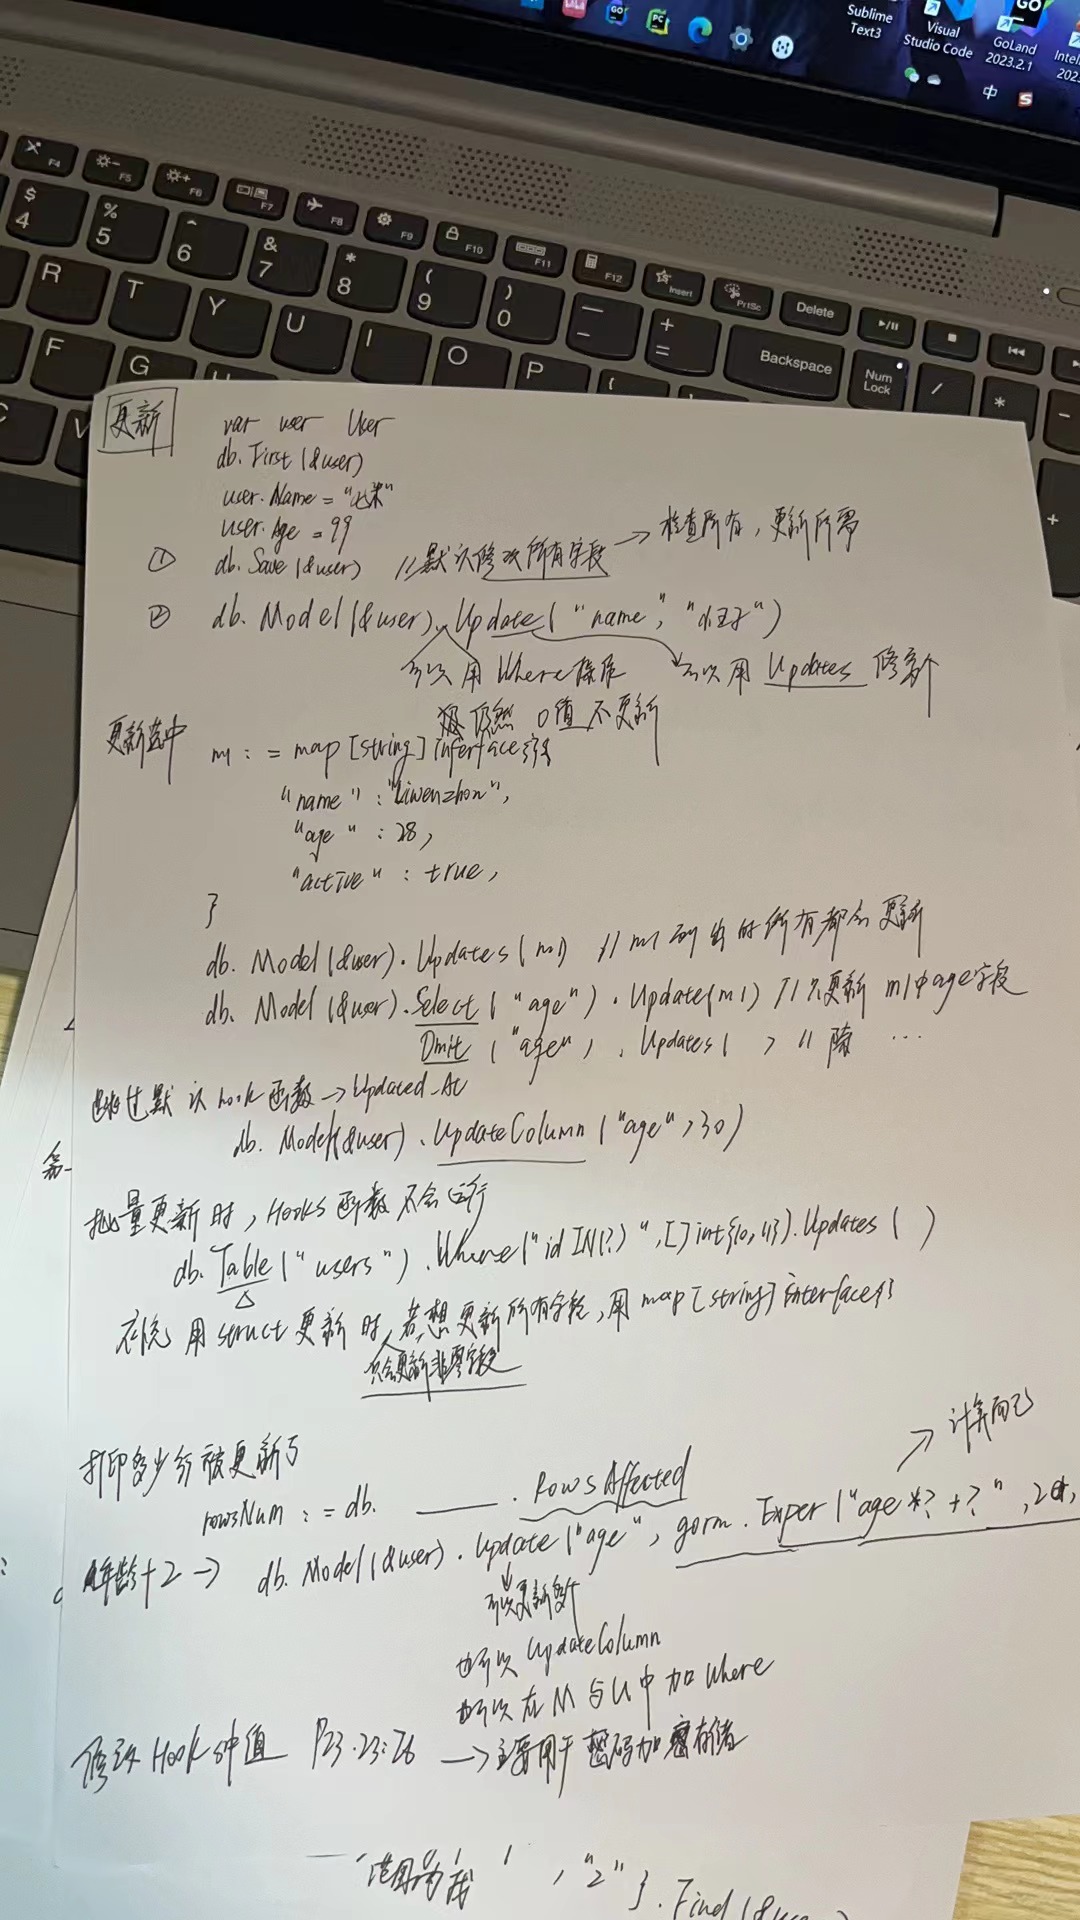 Sublime Text3
Visual Studio Code
GoLand 2023.2.1
中
F4 F5 F6 F7 F8 F9 F10 F11 F12 Insert PrtSc Delete
$ 4 % 5 ^ 6 & 7 * 8 ( 9 ) 0 — - + = Backspace Num Lock / *
R T Y U I O P
F G
更新
var user User
db.First(&user)
user.Name = "七米"
user.Age = 99
① db.Save(&user) //默认修改所有字段 → 检查所有,更新所需
② db.Model(&user).Update("name", "小王子")
可以用 Where 可以用 Updates 修多个
仍然 0值不更新
更新选中
m1 := map[string]interface{}{
"name" : "Liwenzhou",
"age" : 28,
"active" : true,
}
db.Model(&user).Updates(m1) // m1列出的所有都会更新
db.Model(&user).Select("age").Update(m1) //只更新m1中age字段
Omit("age").Updates( ) //除 …
跳过默认hook函数→Updated_At
db.Model(&user).UpdateColumn("age",30)
批量更新时,Hooks函数不会运行
db.Table("users").Where("id IN(?)",[]int{10,11}).Updates( )
用struct更新时,若想更新所有字段,用map[string]interface{}
只会更新非零字段
打印多少行被更新了
rowsNum := db. ____ .RowsAffected
年龄+2 → db.Model(&user).Update("age", gorm.Exper("age*?+?",2
计算而已
可以更新多个
也可以 UpdateColumn
也可以在M与U中加Where
修改Hook中值 P23.23:26 → 主要用于密码加密存储
,"2"}.Find(&